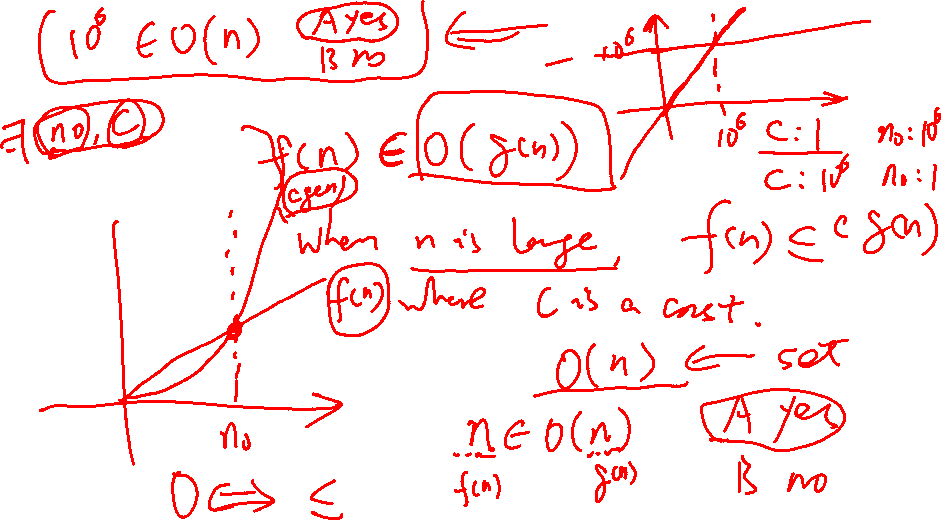 10⁶ ∈ O(n) A yes
B no
10⁶
10⁶
C: 1 n₀: 10⁶
C: 10⁶ n₀: 1
∃ n₀, C
f(n) ∈ O(g(n))
cg(n)
when n is large, f(n) ≤ c g(n)
f(n) where C is a const.
O(n) ← set
n₀
n ∈ O(n) A yes
f(n) g(n) B no
O ⇔ ≤